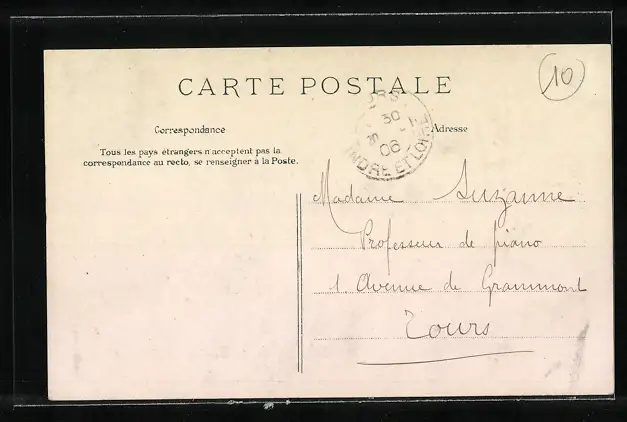 CARTE POSTALE
10
Correspondance
Adresse
Tous les pays étrangers n'acceptent pas la
correspondance au recto, se renseigner à la Poste.
30
06
INDRE ET LOIRE
Madame Suzanne
Professeur de piano
1. Avenue de Grammont
Tours